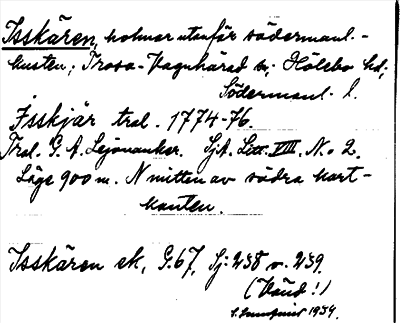 Isskären, holmar utanför södermanl.-
kusten; Trosa-Vagnhärad sn; Hölebo hd;
Södermanl. l.
Isskjär tral. 1774-76.
Tral. G. A. Lejonankar. Sj.A. Litt. VIII. N:o 2.
Läge 900 m. N mitten av södra kart-
kanten.
Isskären ek, G.67, Sj: 238 o. 239.
(Vänd!)
1934.